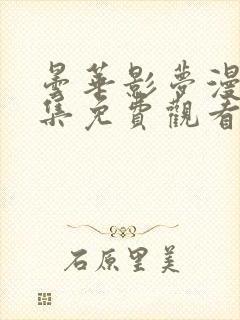 曇華影夢漫
集免費觀看
石原里美